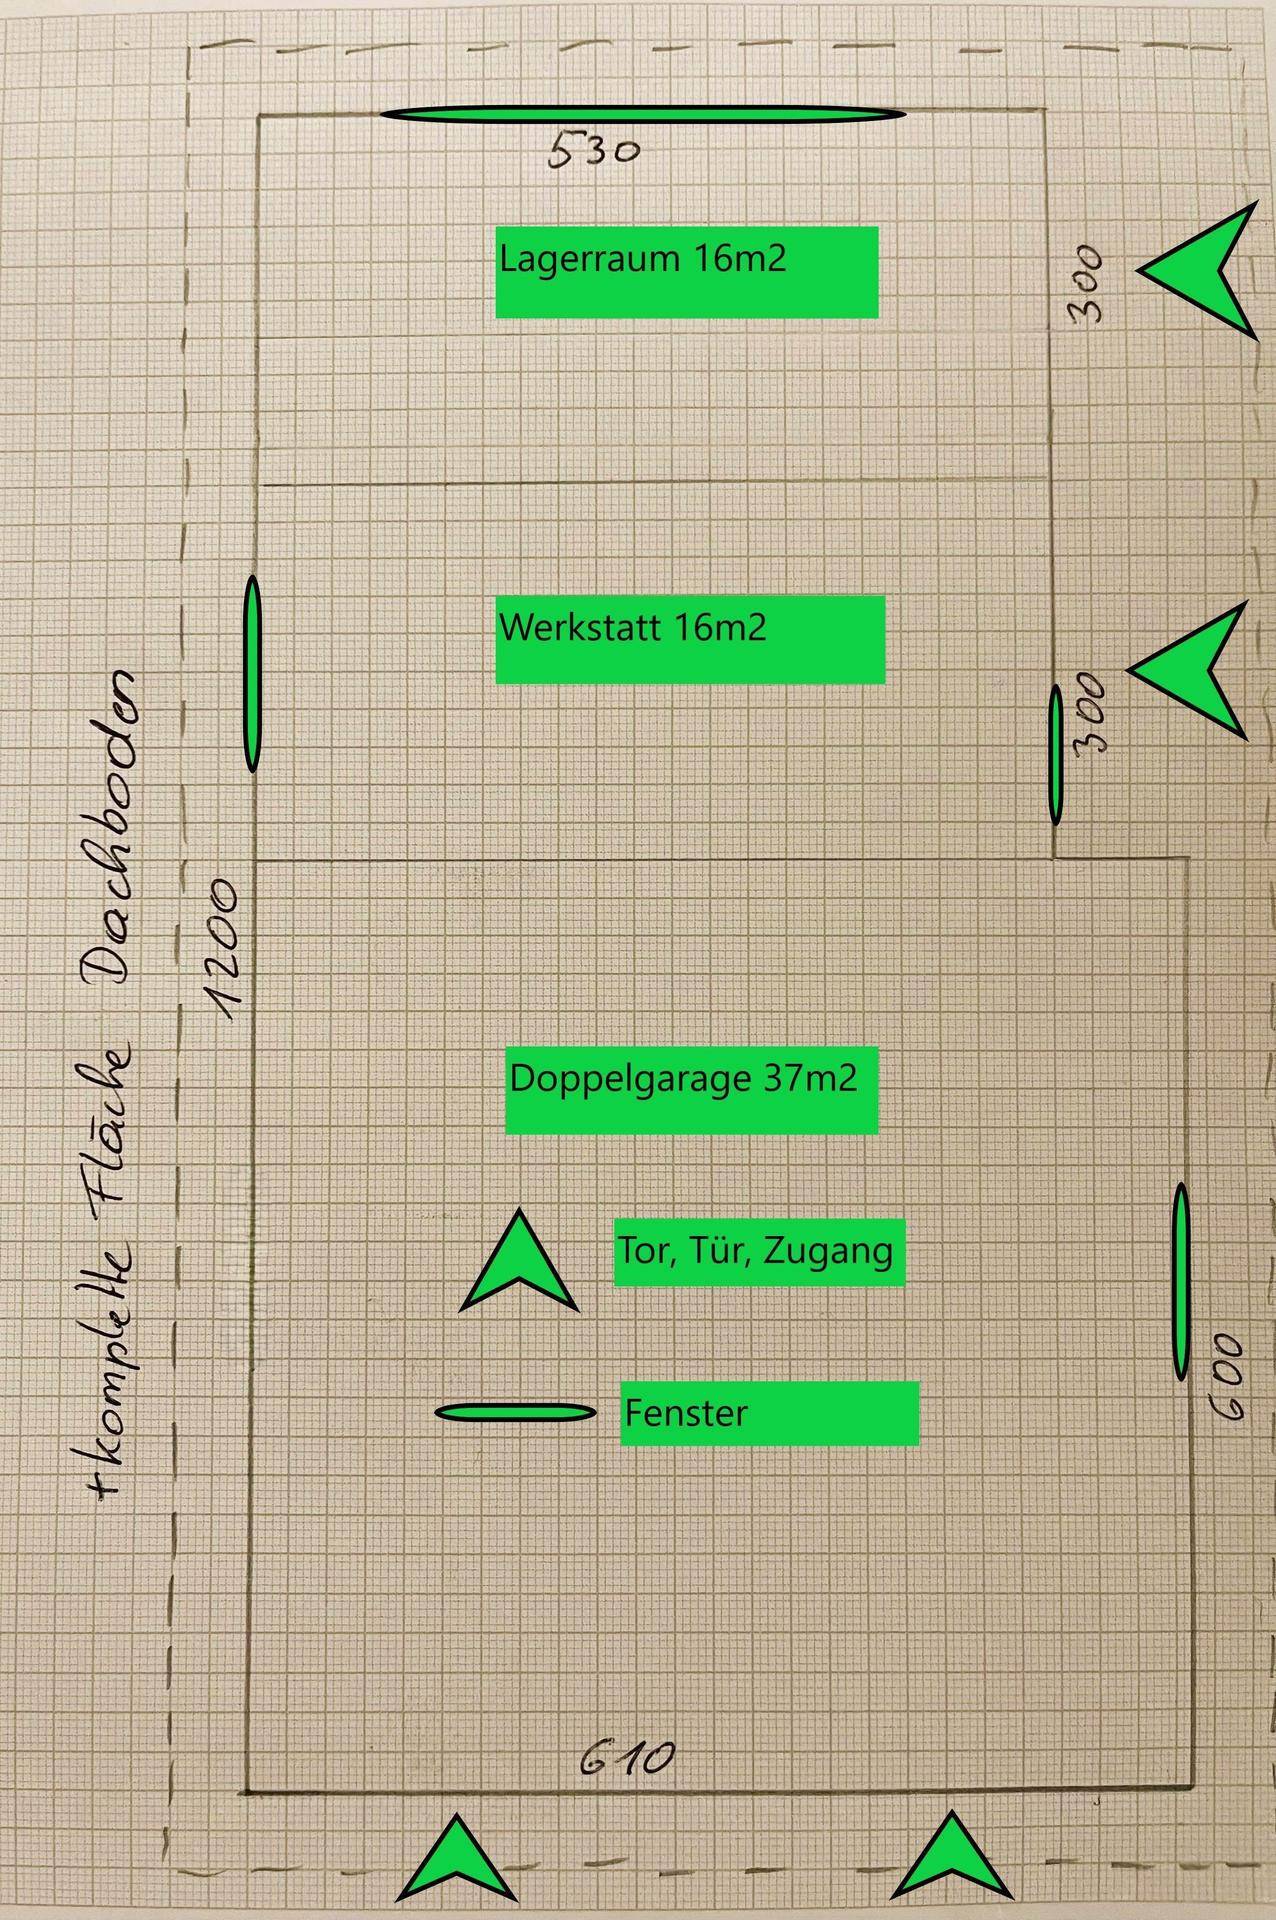 530
Lagerraum 16m2
300
Werkstatt 16m2
300
+komplette Fläche Dachboden
1200
Doppelgarage 37m2
Tor, Tür, Zugang
Fenster
600
610